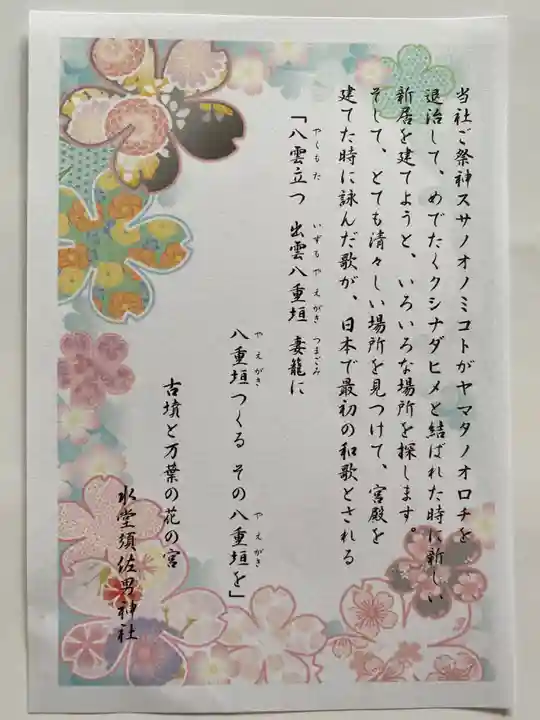 当社ご祭神スサノオノミコトがヤマタノオロチを
退治して、めでたくクシナダヒメと結ばれた時に新しい
新居を建てようと、いろいろな場所を探します。
そして、とても清々しい場所を見つけて、宮殿を
建てた時に詠んだ歌が、日本で最初の和歌とされる
やくもた いずもやえがき つまごみ
「八雲立つ 出雲八重垣 妻籠に
やえがき やえがき
八重垣つくる その八重垣を」
古墳と万葉の花の宮
水堂須佐男神社